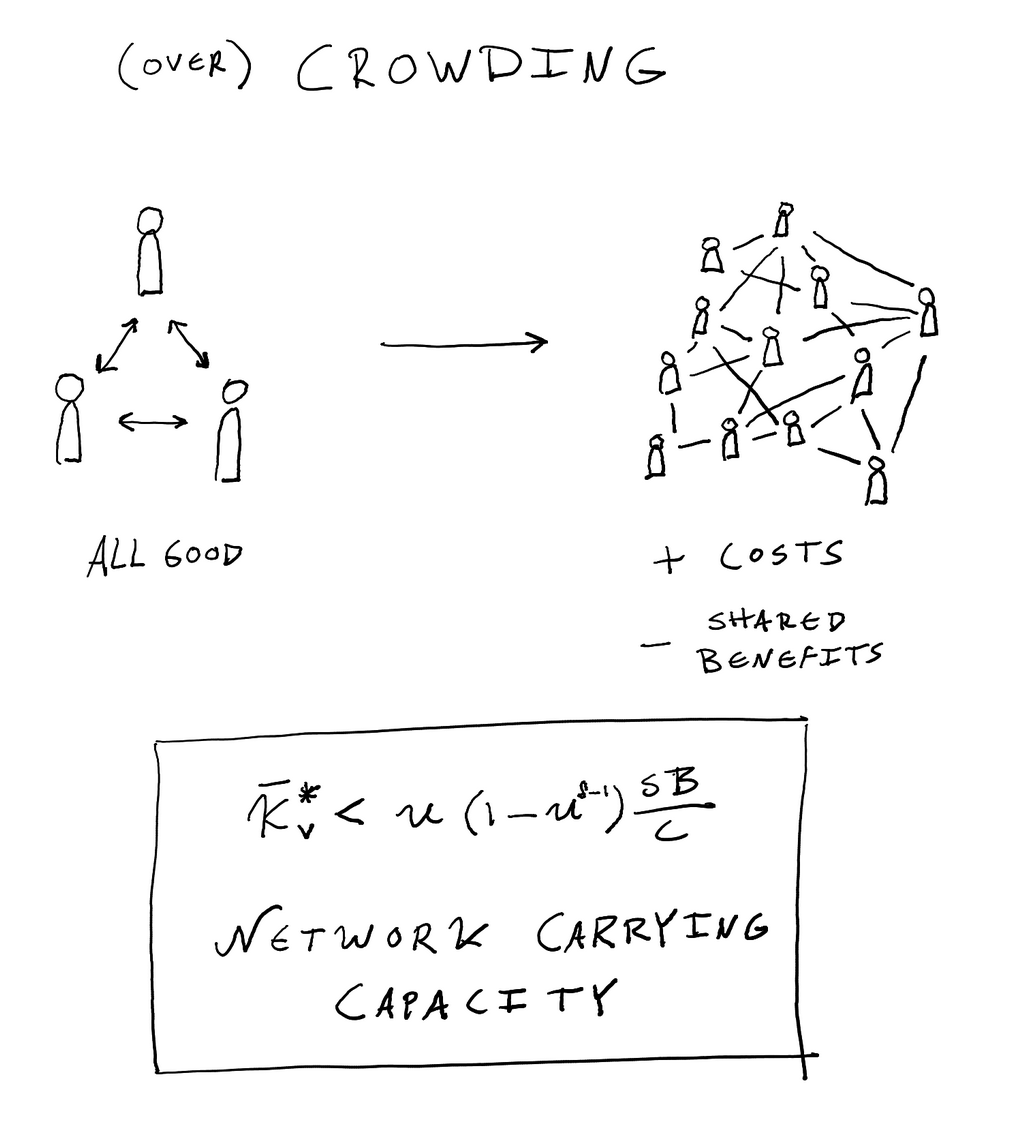 (OVER) CROWDING
ALL GOOD
+ COSTS
- SHARED
BENEFITS
K̄ᵥ* < u (1 - u^{s-1}) SB/C
NETWORK CARRYING
CAPACITY